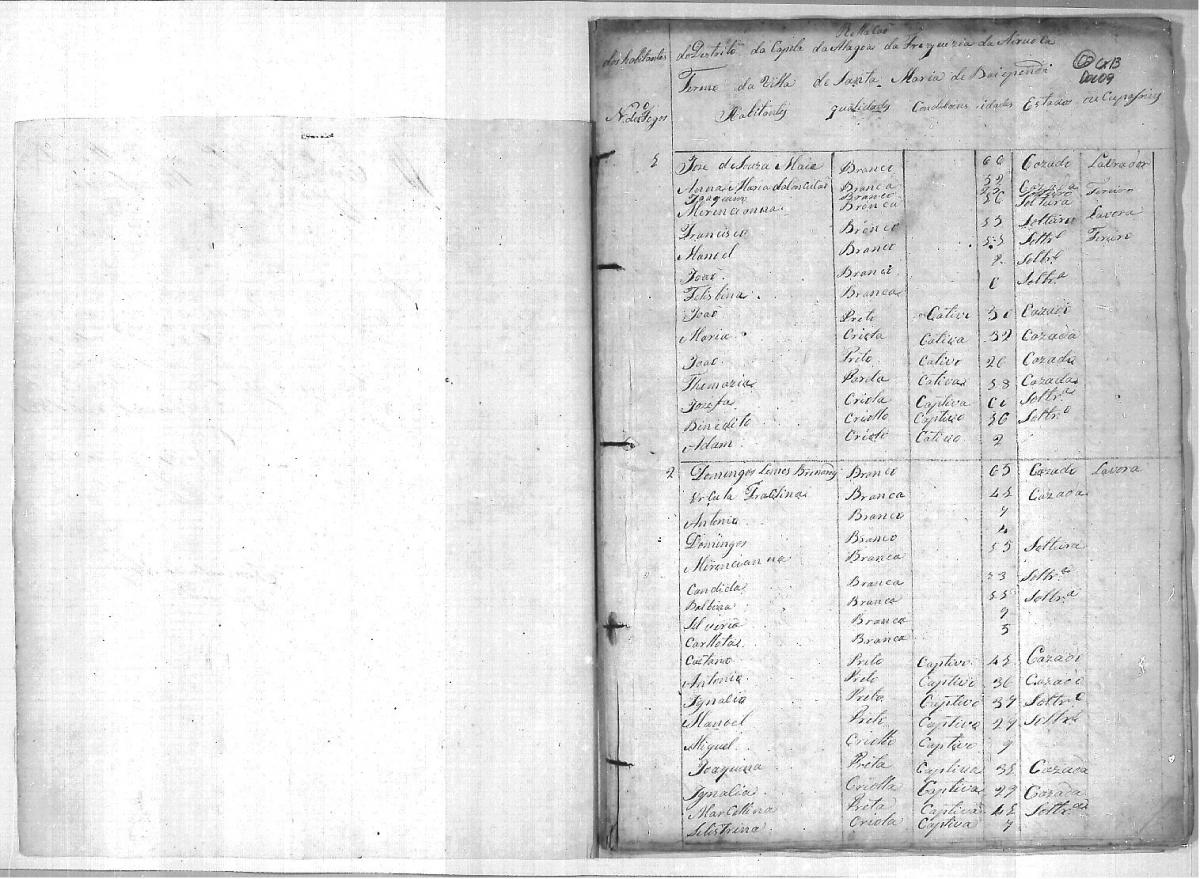 Rellação
dos habitantes do Distrito da Capela da Alagoa da Freguezia da Airuoca
Termo da Villa de Santa Maria de Baependi
Cx 13
Doc 09
No. dos Fogos Habitantes qualidades Condiçoens idades Estados occupaçoens
Joze de Souza Maia Branco 66 Cazado Lavrador
Anna Maria da Branca
Joaquim Branco Ferreiro
Merencianna Branca Solteira
Francisco Branco Solteiro Lavora
Manoel Branco Soltr.o Ferreiro
Joao Branco Soltr.o
Felisbina Branca Soltr.a
Joao Preto Cativo 50 Cazado
Maria Criola Cativa 32 Cazada
Joao Preto Cativo 26 Cazado
Thomazia Parda Cativa 58 Cazada
Jozefa Criola Captiva Soltr.a
Benedito Criollo Captivo Soltr.o
Adam Criolo Cativo 2
2 Domingos Lemos Branco 65 Cazado Lavora
Urçula Branca 45 Cazada
Antonio Branco 7
Domingos Branco 4
Merencianna Branca Solteira
Candida Branca Soltr.a
Balbina Branca Soltr.a
Silveria Branca 9
Carllota Branca 5
Caetano Preto Captivo 45 Cazado
Antonio Preto Captivo 36 Cazado
Ignacio Preto Captivo 37 Soltr.o
Manoel Preto Captivo 29 Soltr.o
Miguel Criollo Captivo 9
Joaquina Preta Captiva 35 Cazada
Ignacia Criolla Captiva 29 Cazada
Marcellina Preta Captiva 45 Soltr.a
Criola Captiva 7